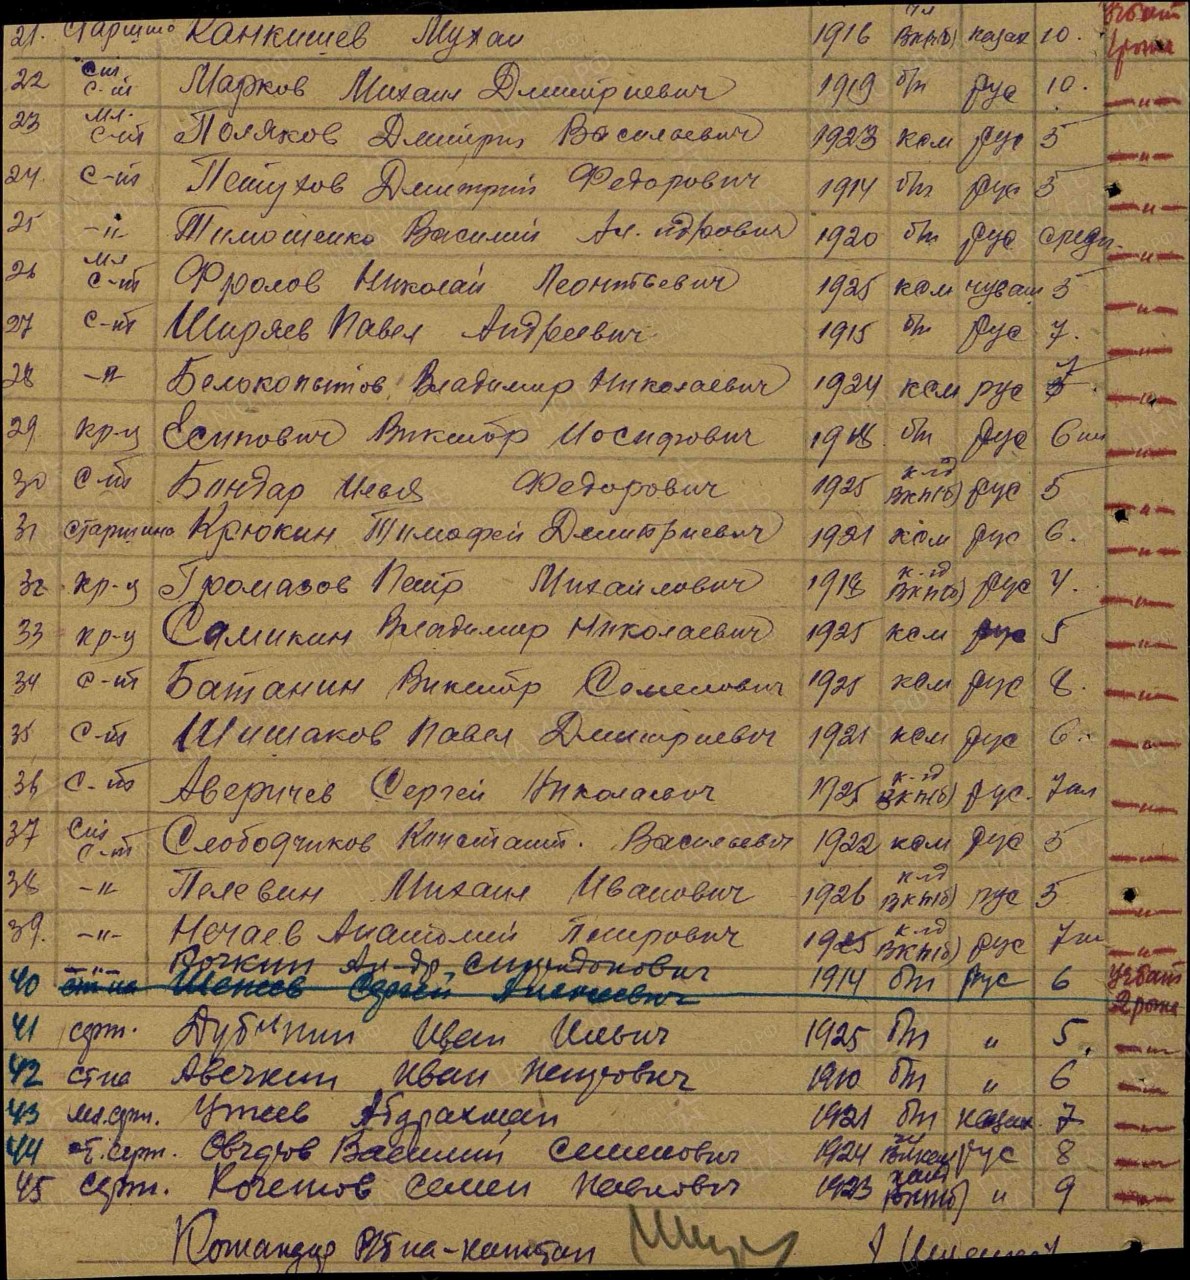 21. старшина Канкишев Мухан 1916 чл ВКП(б) казах 10. Учбат 1 рота
22 Ст с-нт Марков Михаил Дмитриевич 1919 б/п рус 10. —"—
23 Мл. с-нт Поляков Дмитрий Васильевич 1923 ксм рус 5 —"—
24. с-нт Петухов Дмитрий Федорович 1914 б/п рус 5 —"—
25 —"— Тимошенко Василий 1920 б/п рус средн. —"—
26 Мл с-нт Фролов Николай Леонтьевич 1925 ксм чуваш 5 —"—
27 с-нт Ширяев Павел Андреевич 1915 б/п рус 7. —"—
28 —"— Белокопытов Владимир Николаевич 1924 ксм рус 7. —"—
29 кр-ц Есипович Виктор Иосифович 1918 б/п рус 6 —"—
30 с-нт Бондар Илья Федорович 1925 к-нд ВКП(б) рус 5 —"—
31 старшина Крюкин Тимофей Дмитриевич 1921 ксм рус 6. —"—
32 кр-ц Громазов Петр Михайлович 1918 к-нд ВКП(б) рус 4. —"—
33 кр-ц Самикин Владимир Николаевич 1925 ксм рус 5 —"—
34 с-нт Батанин Виктор Семенович 1925 ксм рус 8. —"—
35 с-нт Шишаков Павел Дмитриевич 1921 ксм рус 6. —"—
36 с-нт Аверичев Сергей Николаевич 1925 к-нд ВКП(б) рус. 7 кл —"—
37 Ст с-нт Слободчиков Констант. Васильевич 1922 ксм рус 5 —"—
38 —"— Пелевин Михаил Иванович 1926 к-нд ВКП(б) рус 5 —"—
39. —"— Нечаев Анатолий Петрович 1925 к-нд ВКП(б) рус 7 —"—
40 —"— Рочкин Ан-др. 1914 б/п рус 6 Учбат 2 рота
41 серж. Дубинин Иван Ильич 1925 б/п " 5. —"—
42 ст-на Авечкин Иван Петрович 1910 б/п " 6 —"—
43 мл.серж. Утеев Абдрахман 1921 б/п казах. 7 —"—
44 ст.серж. Овчаров Василий Семенович 1924 рус 8 —"—
45 серж. Кочетов Семен Павлович 1923 канд ВКП(б) " 9 —"—
Командир р/б на-капитан